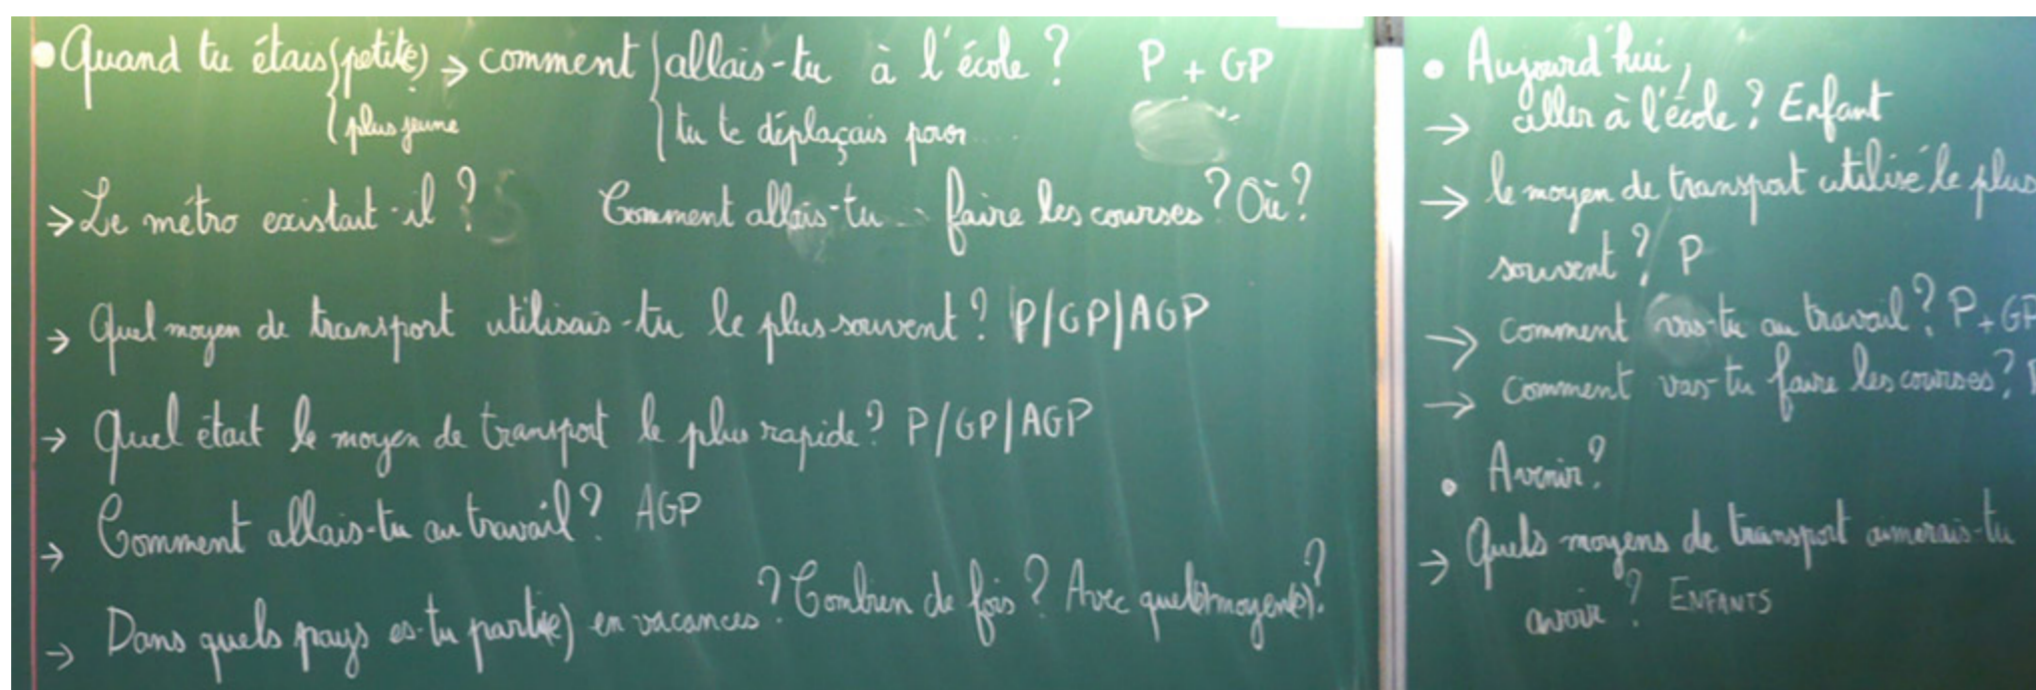 • Quand tu étais { petit(e) → comment { allais-tu à l'école ? P + GP
{ plus jeune { tu te déplaçais pour ...
→ Le métro existait-il ? Comment allais-tu faire les courses ? Où ?
→ Quel moyen de transport utilisais-tu le plus souvent ? P/GP/AGP
→ Quel était le moyen de transport le plus rapide ? P/GP/AGP
→ Comment allais-tu au travail ? AGP
→ Dans quels pays es-tu parti(e) en vacances ? Combien de fois ? Avec quel(s) moyen(s) ?
• Aujourd'hui,
→ aller à l'école ? Enfant
→ le moyen de transport utilisé le plus
souvent ? P
→ comment vas-tu au travail ? P + GP
→ comment vas-tu faire les courses ?
• Avenir ?
→ Quels moyens de transport aimerais-tu
avoir ? ENFANTS